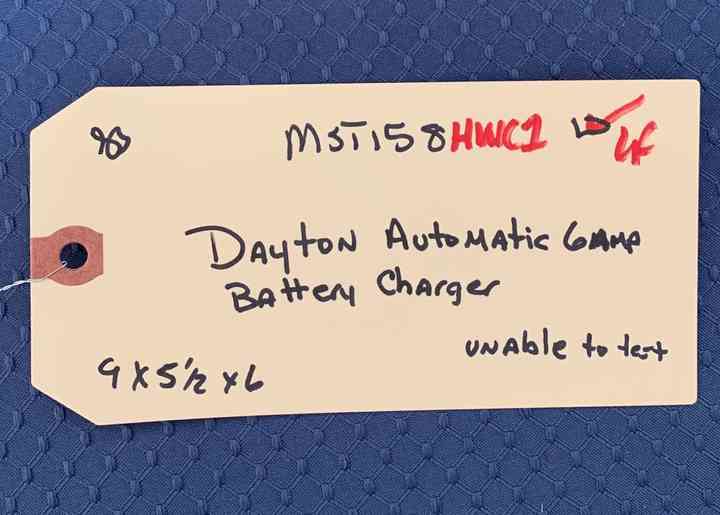 MST158HWC1 LF
Dayton Automatic 6amp
Battery Charger
unable to test
9 x 5 1/2 x 6